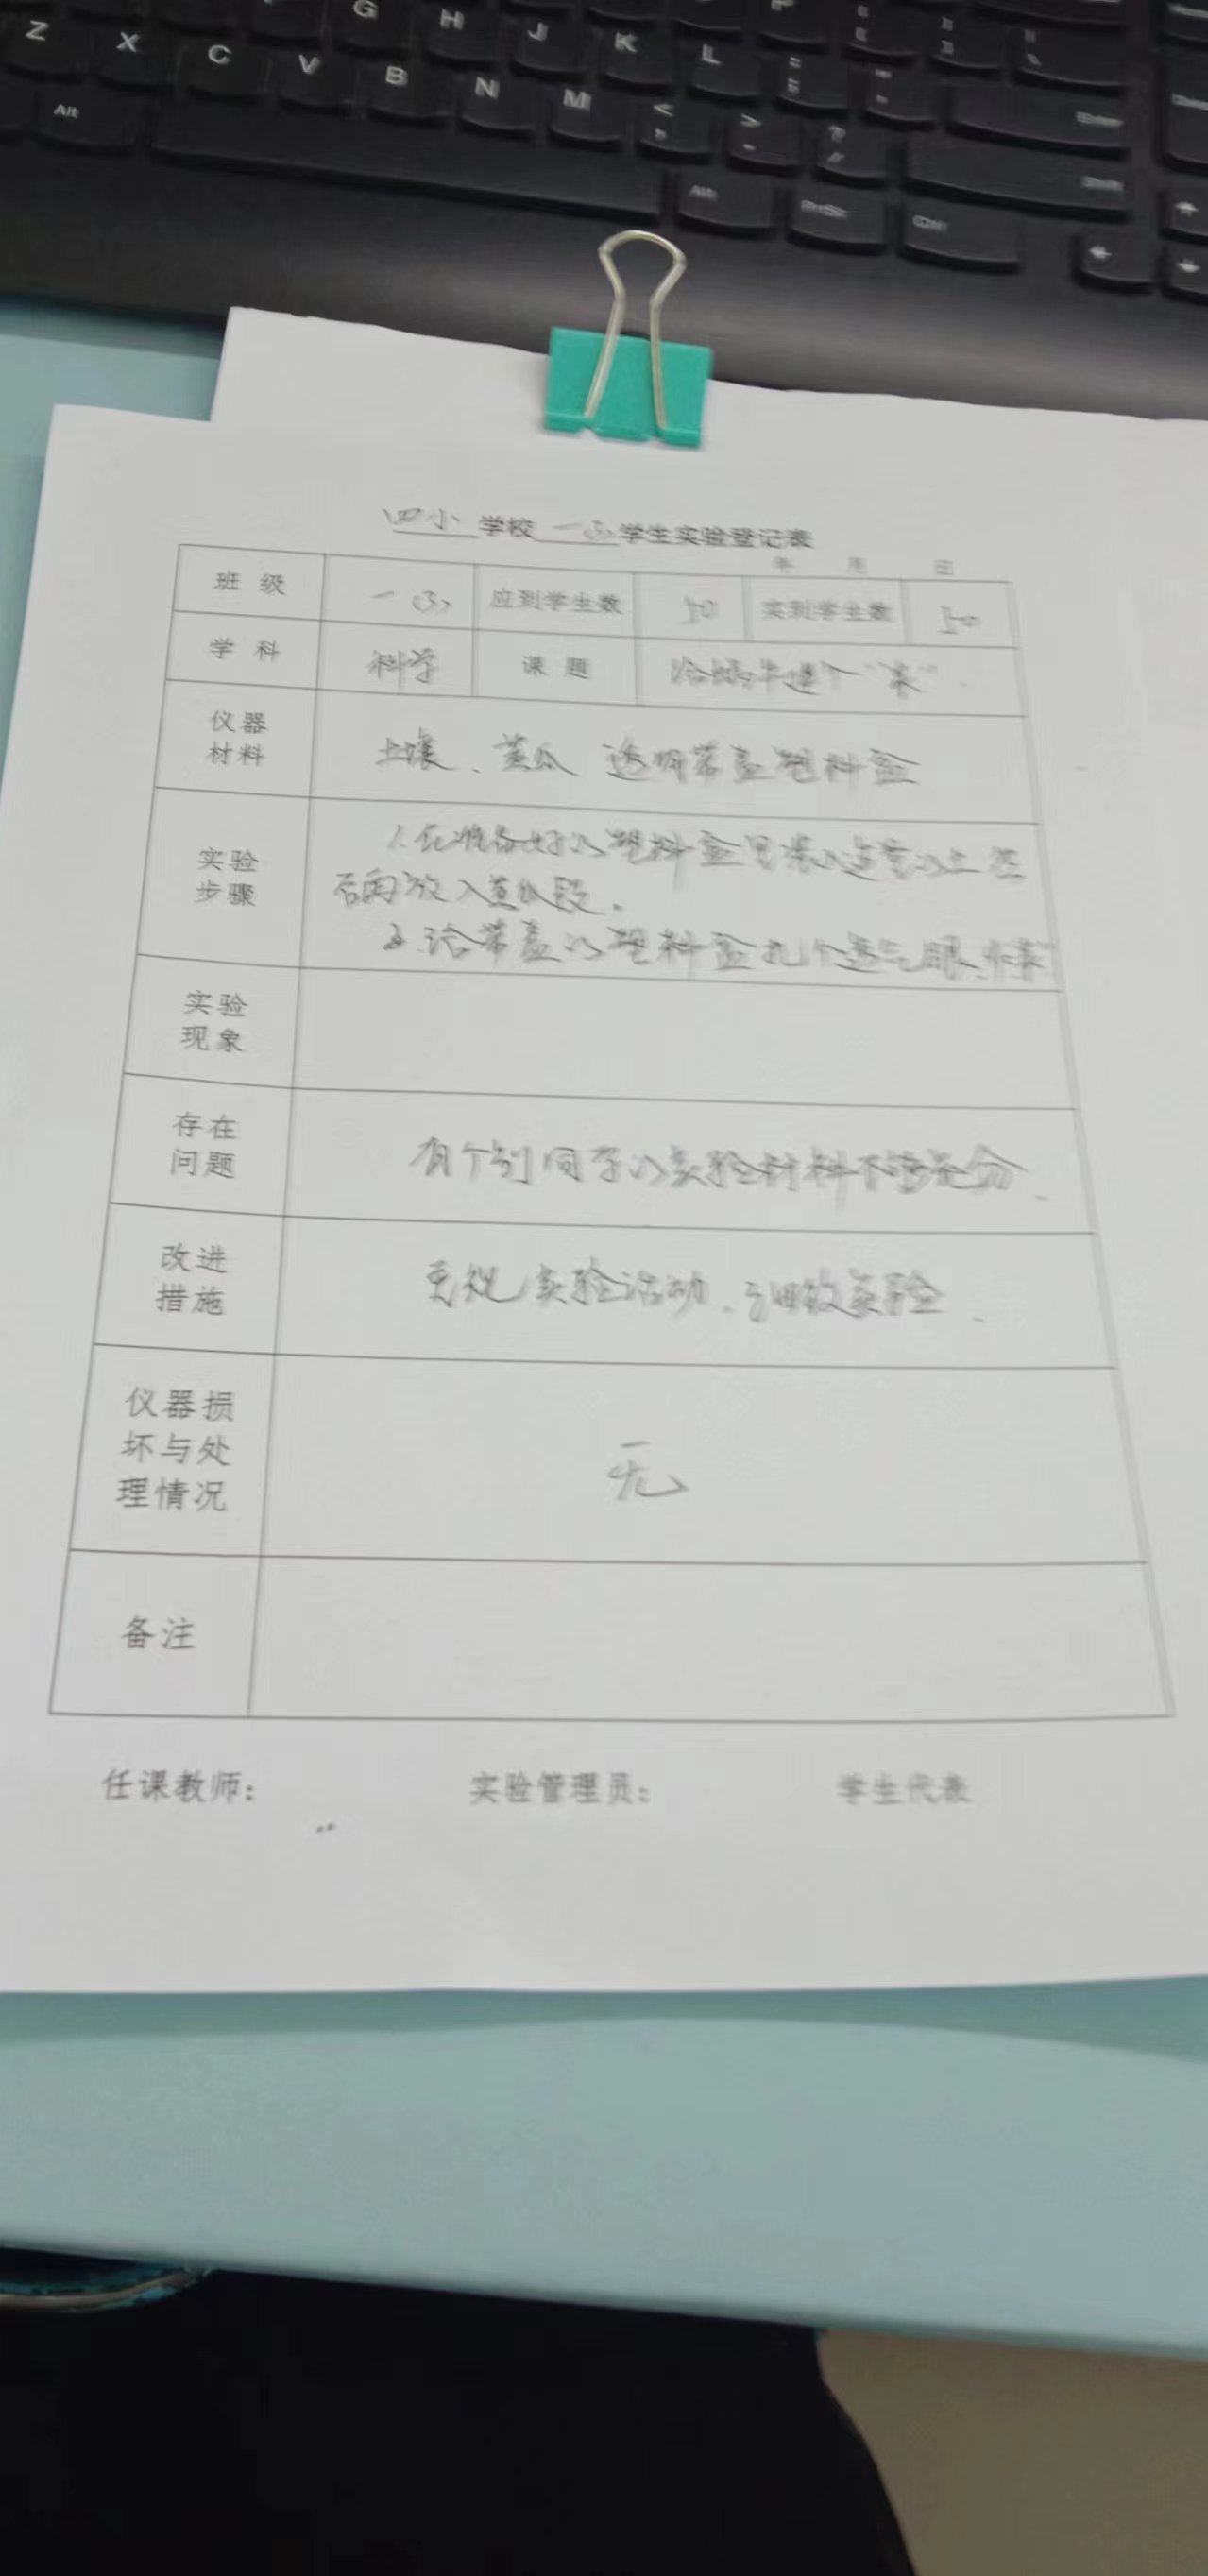 G H J K L
Z X C V B N M < >
Alt Alt PrtSc Ctrl Enter Shift
四小 学校 学生实验登记表
年 月 日
班 级 应到学生数 50 实到学生数 50
学 科 科学 课 题 给蜗牛建个"家"
仪器 材料 土壤、黄瓜 透明带盖塑料盒
实验 步骤 1.在准备好的塑料盒里装入适量的土 然
后再放入黄瓜段。
2.给带盖的塑料盒扎个透气眼
实验 现象
存在 问题 有个别同学的实验材料不
改进 措施 实验活动、实验
仪器损 坏与处 理情况 无
备注
任课教师: 实验管理员: 学生代表